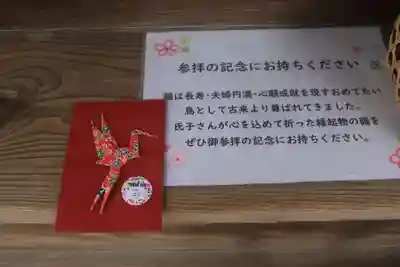 参拝の記念にお持ちください
鶴は長寿・夫婦円満・心願成就を現すおめでたい
鳥として古来より尊ばれてきました。
氏子さんが心を込めて折った縁起物の鶴を
ぜひ御参拝の記念にお持ちください。